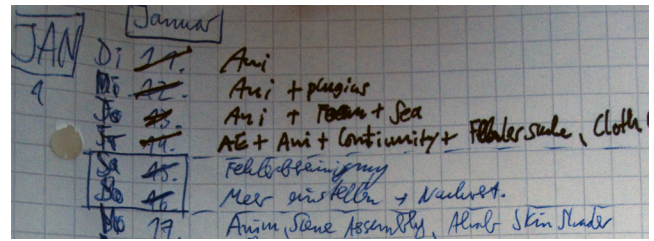 Januar
JAN
1
Di 11. Ani
Mi 12. Ani + plugins
Do 13. Ani + Team + Sea
Fr 14. AE + Ani + Continuity + Fehlersuche, Cloth
Sa 15. Fehlerbereinigung
So 16. Meer einstellen →
Mo 17. Anim, Scene Assembly, Skin Shader